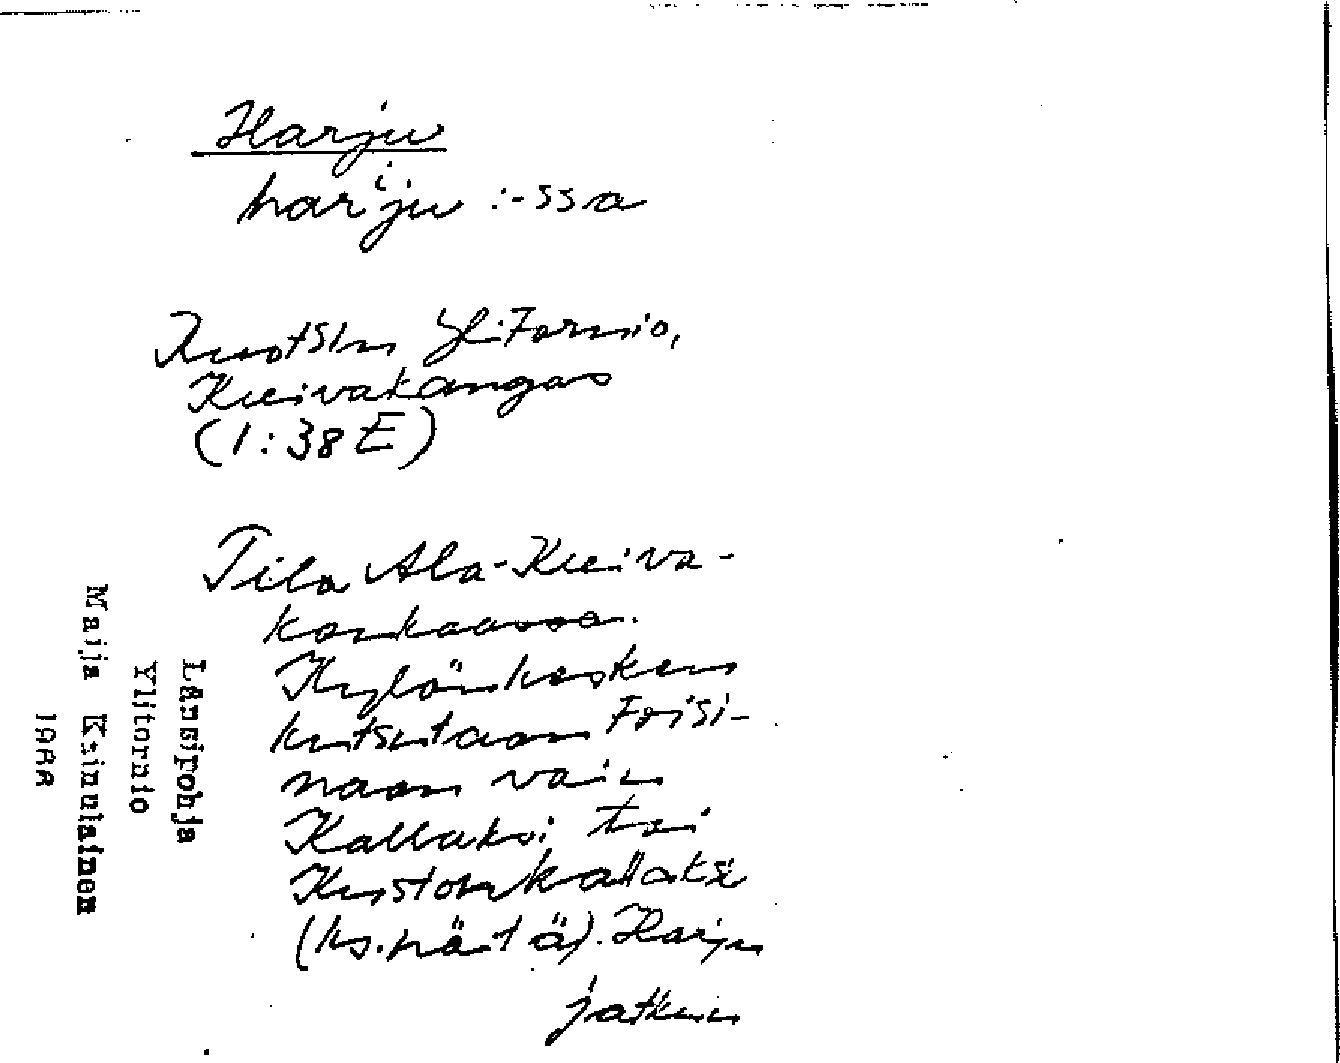 Harju
harⁱju :-ssa
Ruotsin Ylitornio,
Kuivakangas
(1:38 E)
Tila Ala-Kuiva-
kankaassa.
Kylän kesken
kutsutaan
naan vain
Kallaksi tai
Kustonkallaksi
(ks. näitä). Harju
jatkuu
Länsipohja
Ylitornio
Maija Kainulainen
1988